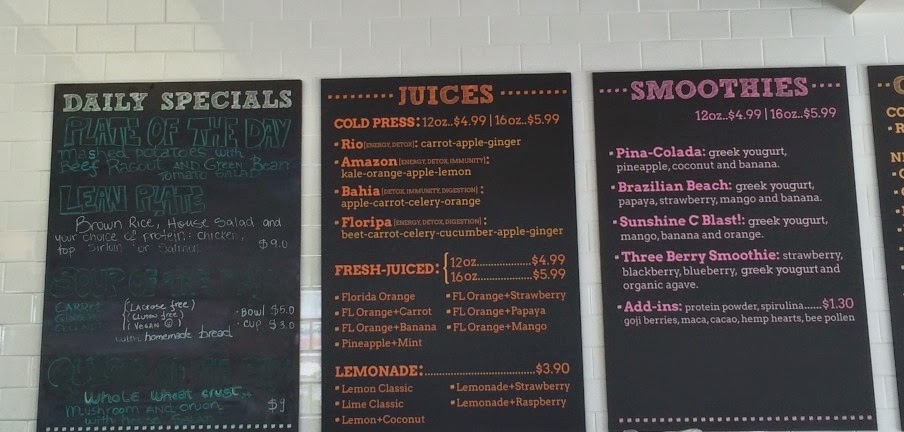 DAILY SPECIALS
PLATE OF THE DAY
Mashed potatoes with
Beef Ragout and Green Bean
Tomato Salad
LEAN PLATE
Brown Rice, House Salad and
your choice of protein: chicken,
top Sirloin or Salmon.
$9.0
(Lactose free)
(Gluten free)
(Vegan ☺)
with homemade bread
• Bowl $5.0
• Cup $3.0
OF THE
Whole wheat crust
Mushroom and onion
with
$9
JUICES
COLD PRESS: 12oz..$4.99 | 16oz..$5.99
• Rio [ENERGY, DETOX]: carrot-apple-ginger
• Amazon [ENERGY, DETOX, IMMUNITY]:
kale-orange-apple-lemon
• Bahia [DETOX, IMMUNITY, DIGESTION]:
apple-carrot-celery-orange
• Floripa [ENERGY, DETOX, DIGESTION]:
beet-carrot-celery-cucumber-apple-ginger
FRESH-JUICED: { 12oz.....................$4.99
16oz.....................$5.99
• Florida Orange
• FL Orange+Carrot
• FL Orange+Banana
• Pineapple+Mint
• FL Orange+Strawberry
• FL Orange+Papaya
• FL Orange+Mango
LEMONADE:...........................$3.90
• Lemon Classic
• Lime Classic
• Lemon+Coconut
• Lemonade+Strawberry
• Lemonade+Raspberry
SMOOTHIES
12oz..$4.99 | 16oz..$5.99
• Pina-Colada: greek yougurt,
pineapple, coconut and banana.
• Brazilian Beach: greek yougurt,
papaya, strawberry, mango and banana.
• Sunshine C Blast!: greek yougurt,
mango, banana and orange.
• Three Berry Smoothie: strawberry,
blackberry, blueberry, greek yougurt and
organic agave.
• Add-ins: protein powder, spirulina......$1.30
goji berries, maca, cacao, hemp hearts, bee pollen